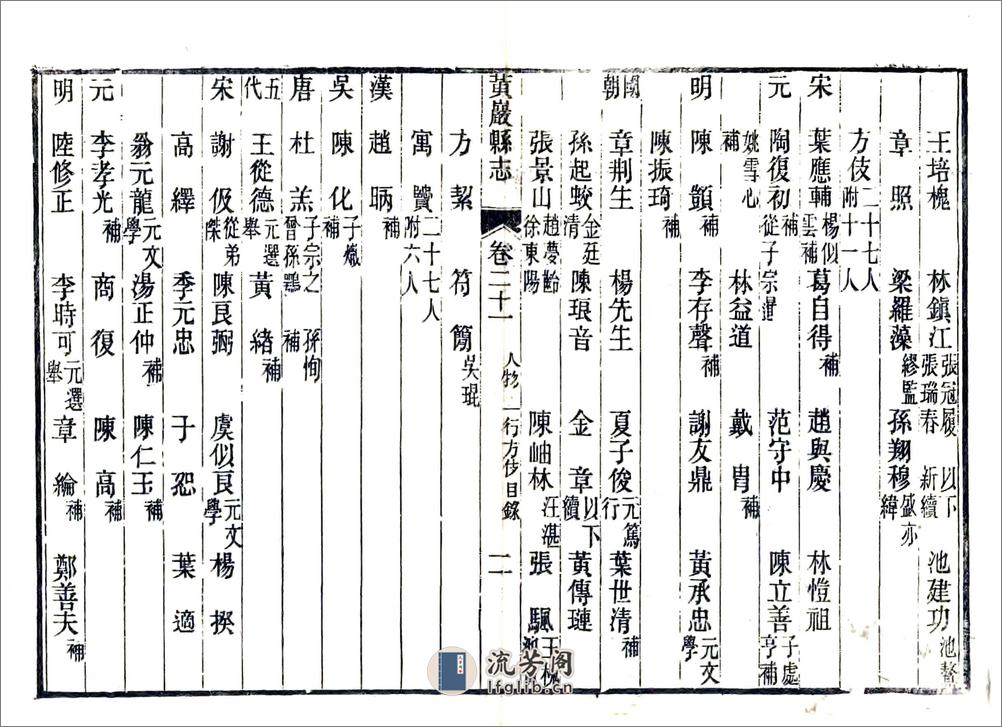 王培槐 林鎮江 張冠履 張瑞春 以下新續 池建功 池鰲
章照 梁羅藻 繆監 孫翔穆 盛亦緯
方伎二十七人 附十一人
宋 葉應輔 楊似雲補 葛自得補 趙與慶 林愷祖
元 陶復初 補 從子宗 范守中 陳立善 子處亨補
姚雪心補 林益道 戴胄補
明 陳顗補 李存聲 謝友鼎 黃承忠 元文學
陳振琦
國朝 章荆生 楊先生 夏子俊 元篤行 葉世清補
孫起蛟 金廷清 陳琅音 金章 以下續 黃傳璉
張景山 趙夢齡 徐東陽 陳岫林 汪湛 張颿 王槐
黃巖縣志 卷二十一 人物 一行方伎目錄 二
方絜 符簡 吳琨
寓賢二十七人 附六人
漢 趙昞補
吳 陳化 子熾補
唐 杜羔 子宗之 曾孫鶚 孫恂補
五代 王從德 元選舉 黃緒補
宋 謝伋 從弟傑 陳良弼 虞似良 元文學 楊揆
高繹 季元忠 子恕 葉適
翁元龍 元文學 湯正仲補 陳仁玉補
元 李孝光補 商復 陳高補
明 陸修正 李時可 元選舉 章綸補 鄭善夫補
流芳閣
lfglib.cn